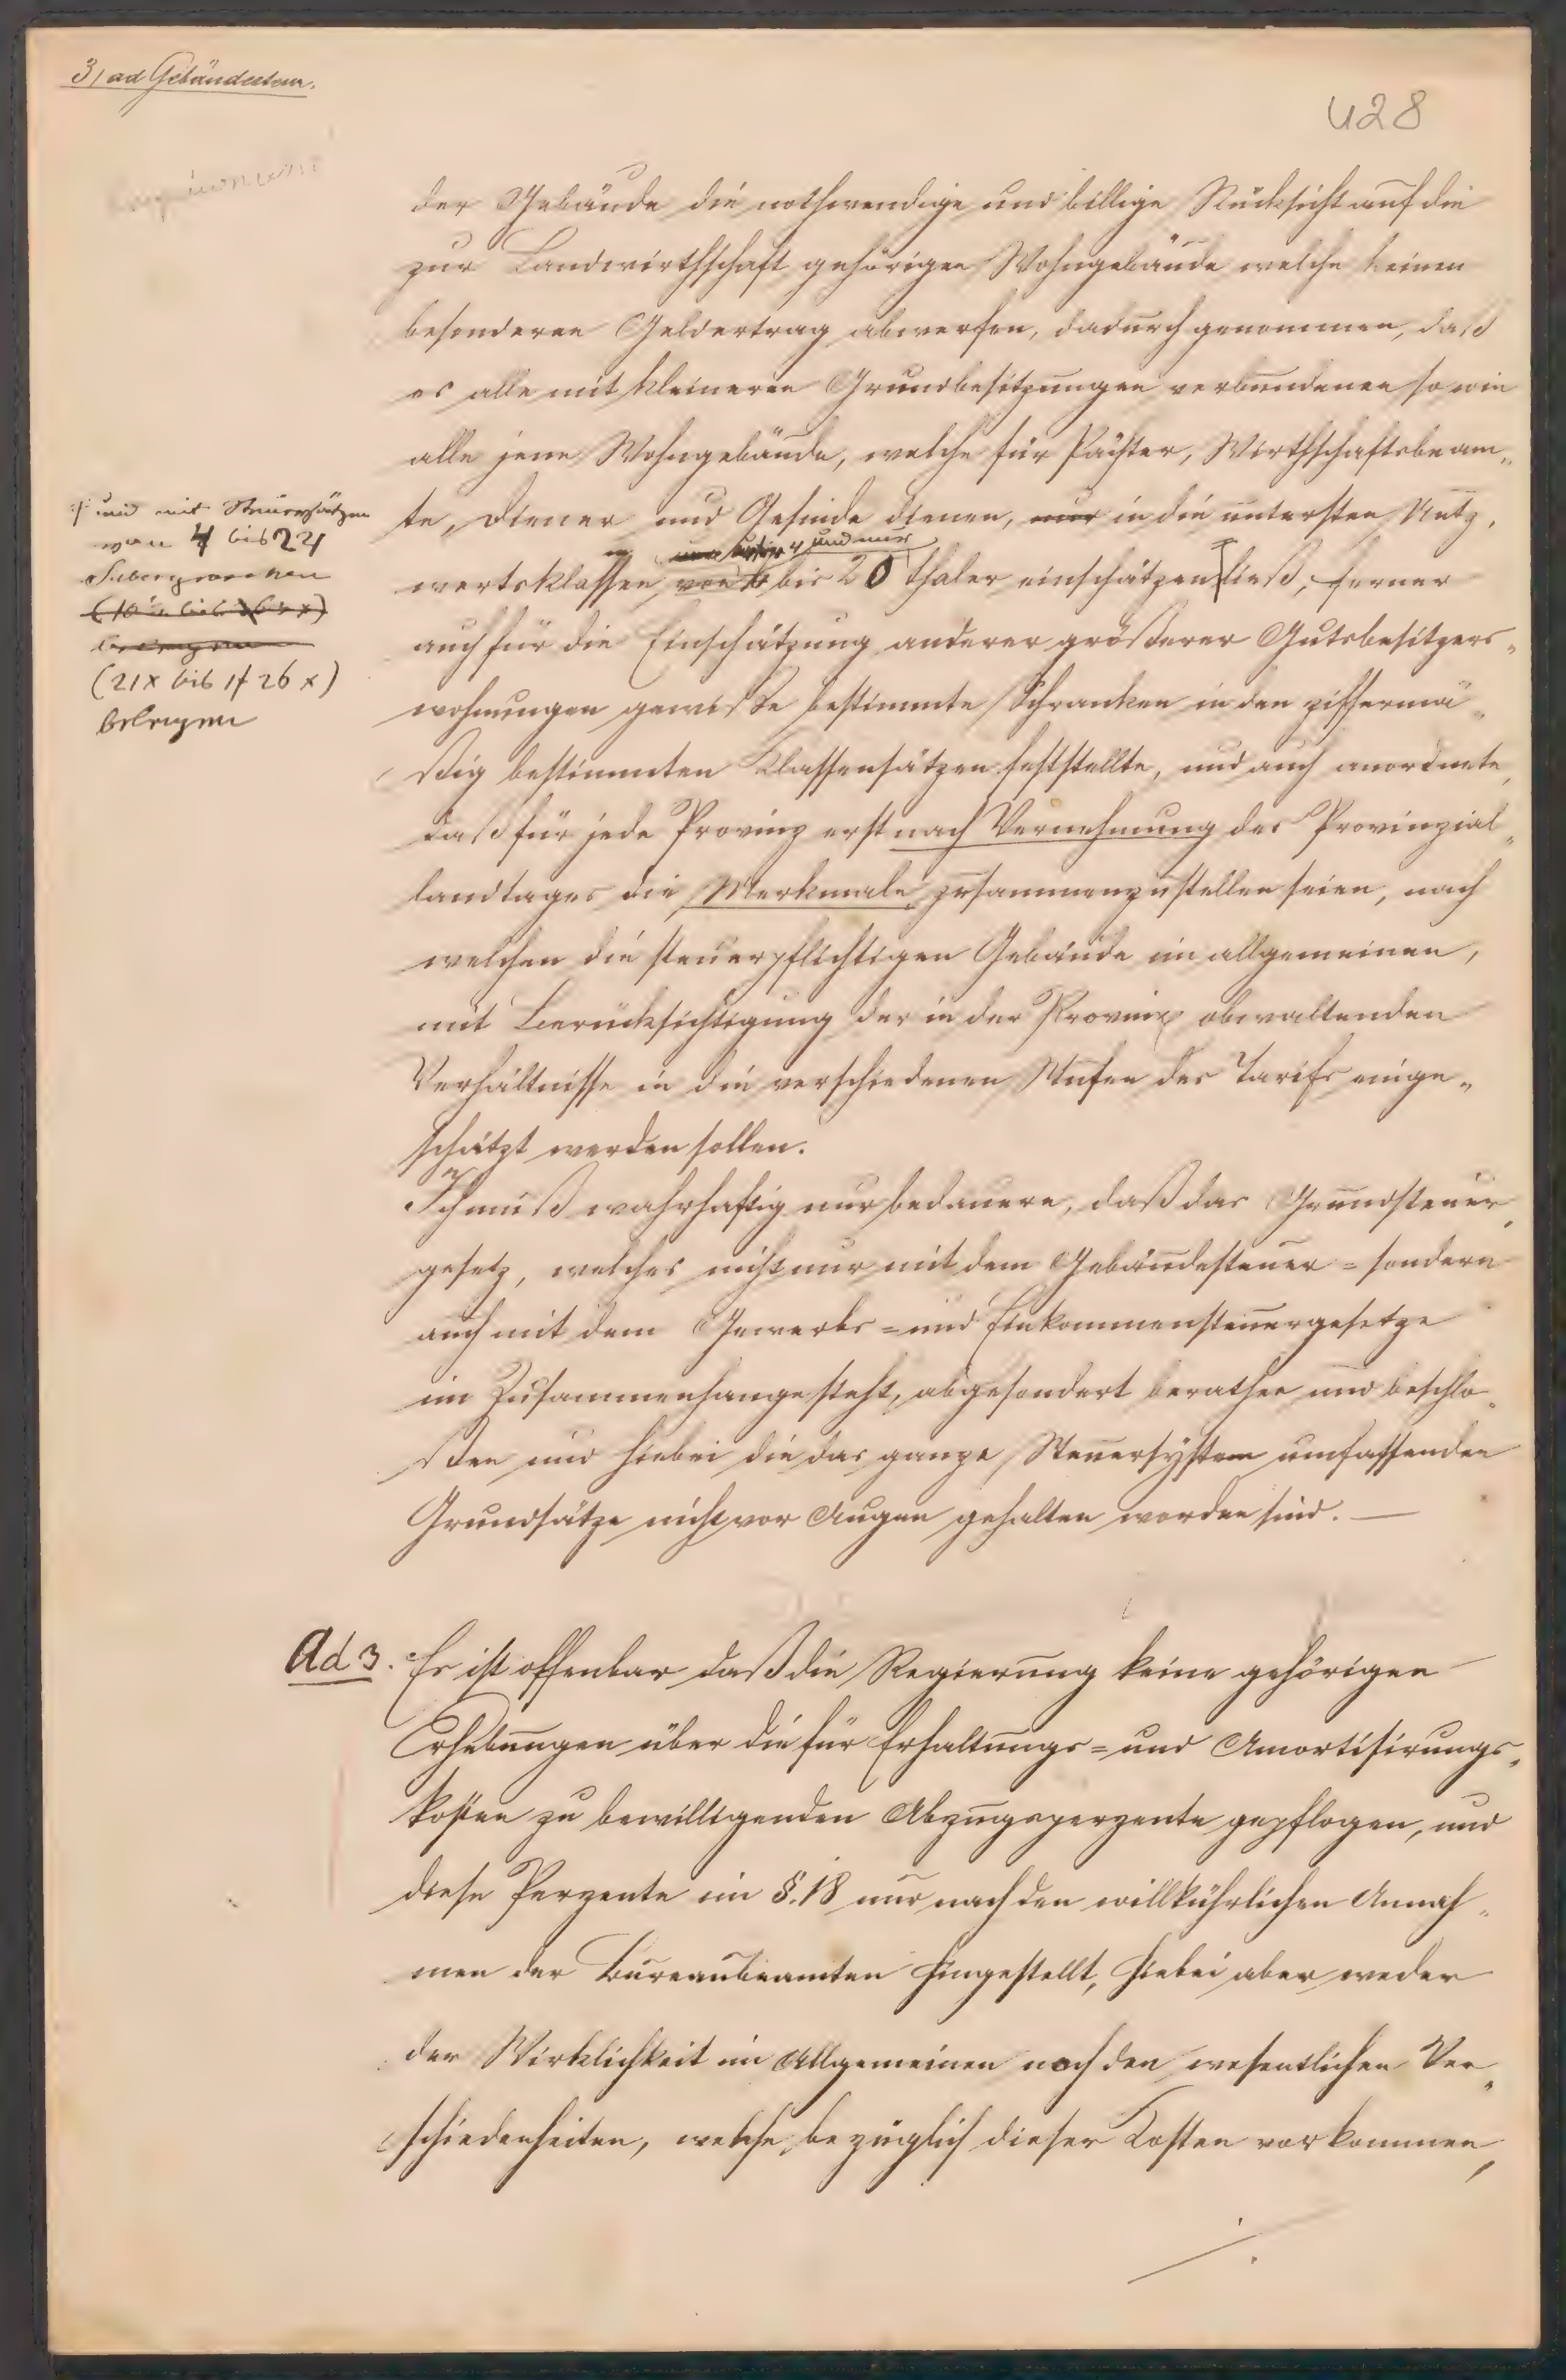 3/ ad Gebäudesteuer.
428
der Gebäude die nothwendige und billige Rücksicht auf die
zur Landwirthschaft gehörigen Wohngebäude welche keinen
besonderen Geldertrag abwerfen, dadurch genommen, daß
es alle mit kleineren Grundbesitzungen verbundenen so wie
alle jene Wohngebäude, welche für Pächter, Wirthschaftsbeam„
te, Diener und Gesinde dienen, nur in die untersten Nutz„
und nur
wertsklassen von bis 20 Thaler einschätzen ließ, ferner
auch für die Einschätzung anderer größerer Gutsbesitzers„
wohnungen gewiße bestimmte Schranken in den ziffermä„
ßig bestimmten Klassensätzen feststellte, und auch anordnete,
daß für jede Provinz erst nach Vernehmung des Provinzial„
landtages die Merkmale zusammenzustellen seien, nach
welchen die steuerpflichtigen Gebäude im allgemeinen,
mit Berücksichtigung der in der Provinz obwaltenden
Verhältnisse in die verschiedenen Stufen des Tarifs einge„
schätzt werden sollen.
Ich muß wahrhaftig nur bedauern, daß das Grundsteuer„
gesetz, welches nicht nur mit dem Gebäudesteuer= sondern
auch mit dem Gewerbs= und Einkommensteuergesetze
im Zusammenhange steht, abgesondert berathen und beschlo„
ßen und hiebei die das ganze Steuersystem umfassenden
Grundsätze nicht vor Augen gehalten worden sind. —
und mit Steuersätzen
von 4 bis 24
Silbergroschen
(21x bis 1f 26x)
belegen
Ad 3. Es ist offenbar daß die Regierung keine gehörigen
Erhebungen über die für Erhaltungs= und Amortisirungs„
kosten zu bewilligenden Abzugsperzente gepflogen, und
diese Perzente im §. 18 nur nach den willkührlichen Annah„
men der Bureaubeamten hingestellt, hiebei aber weder
der Wirklichkeit im Allgemeinen noch den wesentlichen Ver„
schiedenheiten, welche bezüglich dieser Kosten vorkommen,
./.